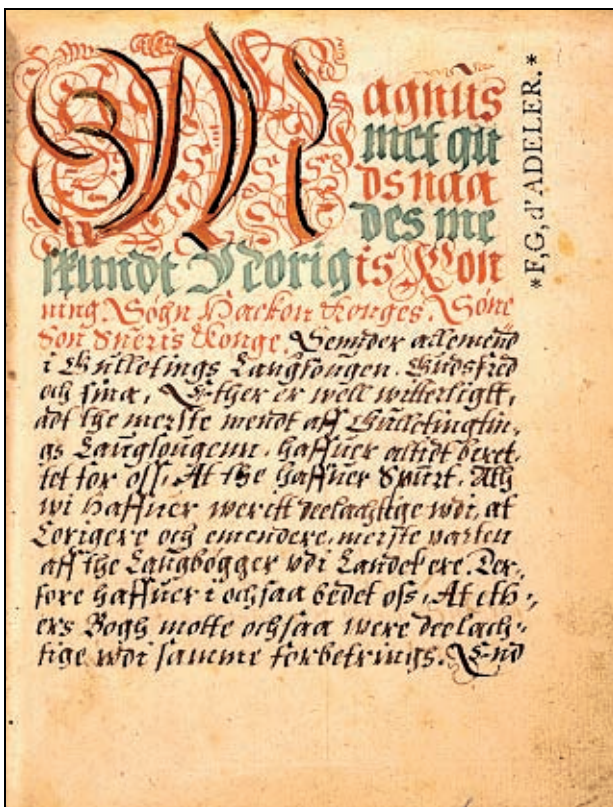 Magnus
met gu
ds naa
des me
skundt Norigis Kon
ning. Søgn Hackon Konges. Søne
Søn Sueris Konge. Sennder allemend
i Gulletings Laugsougen. Gudsfred
och sina, Ether er well witterligtt,
adt the merste mendt aff Gulletingtin,
gs Laugsougenn. haffuer altidt beret,
tet for oss. At the haffuer Spurt. Alh
wi haffuer weritt deelachtige wdi, at
Corigere och emendere, merste parten
aff the Laugbøgger wdi Landet ere. Der,
fore haffuer i ochsaa bedet oss. At eth,
ers Bogh motte ochsaa were deelach,
tige wdi samme forbetrings. End
*F,G,d'ADELER.*